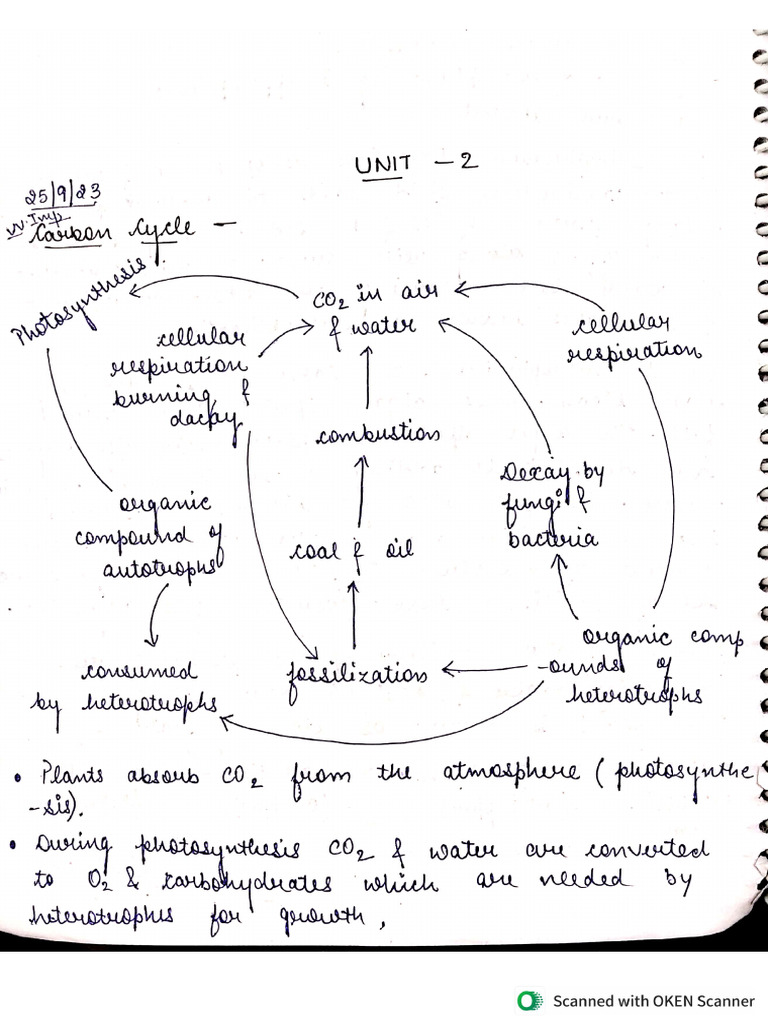 UNIT - 2
25/9/23
VV. Imp
Carbon Cycle -
Photosynthesis
CO2 in air
& water
cellular
respiration
burning &
dacay
cellular
respiration
combustion
Decay by
fungi &
bacteria
organic
compound of
autotrophs
coal & oil
consumed
by heterotrophs
fossilization
organic comp
-ounds of
heterotrophs
• Plants absorb CO2 from the atmosphere (photosynthe
-sis).
• During photosynthesis CO2 & water are converted
to O2 & carbohydrates which are needed by
heterotrophs for growth,
Scanned with OKEN Scanner